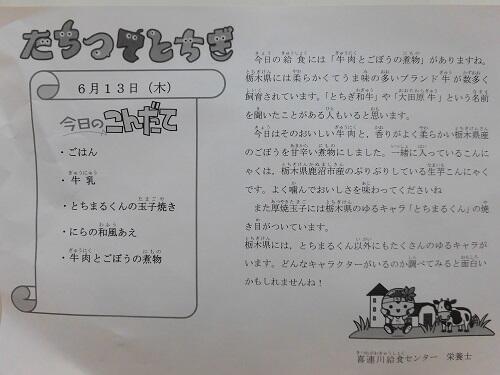 たちつてとちぎ
6月13日（木）
今日のこんだて
・ごはん
・牛乳
・とちまるくんの玉子焼き
・にらの和風あえ
・牛肉とごぼうの煮物
今日の給食には「牛肉とごぼうの煮物」がありますね。
栃木県には柔らかくてうま味の多いブランド牛が数多く
飼育されています。「とちぎ和牛」や「大田原牛」という名前
を聞いたことがある人もいると思います。
今日はそのおいしい牛肉と、香りがよく柔らかい栃木県産
のごぼうを甘辛い煮物にしました。一緒に入っているこんに
ゃくは、栃木県鹿沼市産のぷりぷりしている生芋こんにゃく
です。よく噛んでおいしさを味わってくださいね
また厚焼玉子には栃木県のゆるキャラ「とちまるくん」の焼
き目がついています。
栃木県には、とちまるくん以外にもたくさんのゆるキャラが
います。どんなキャラクターがいるのか調べてみると面白い
かもしれませんね！
喜連川給食センター 栄養士